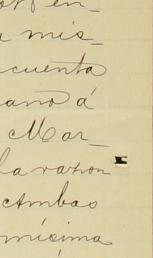 en_
mis_
cuenta
ano á
Mar_
la razon
Ambas
misima